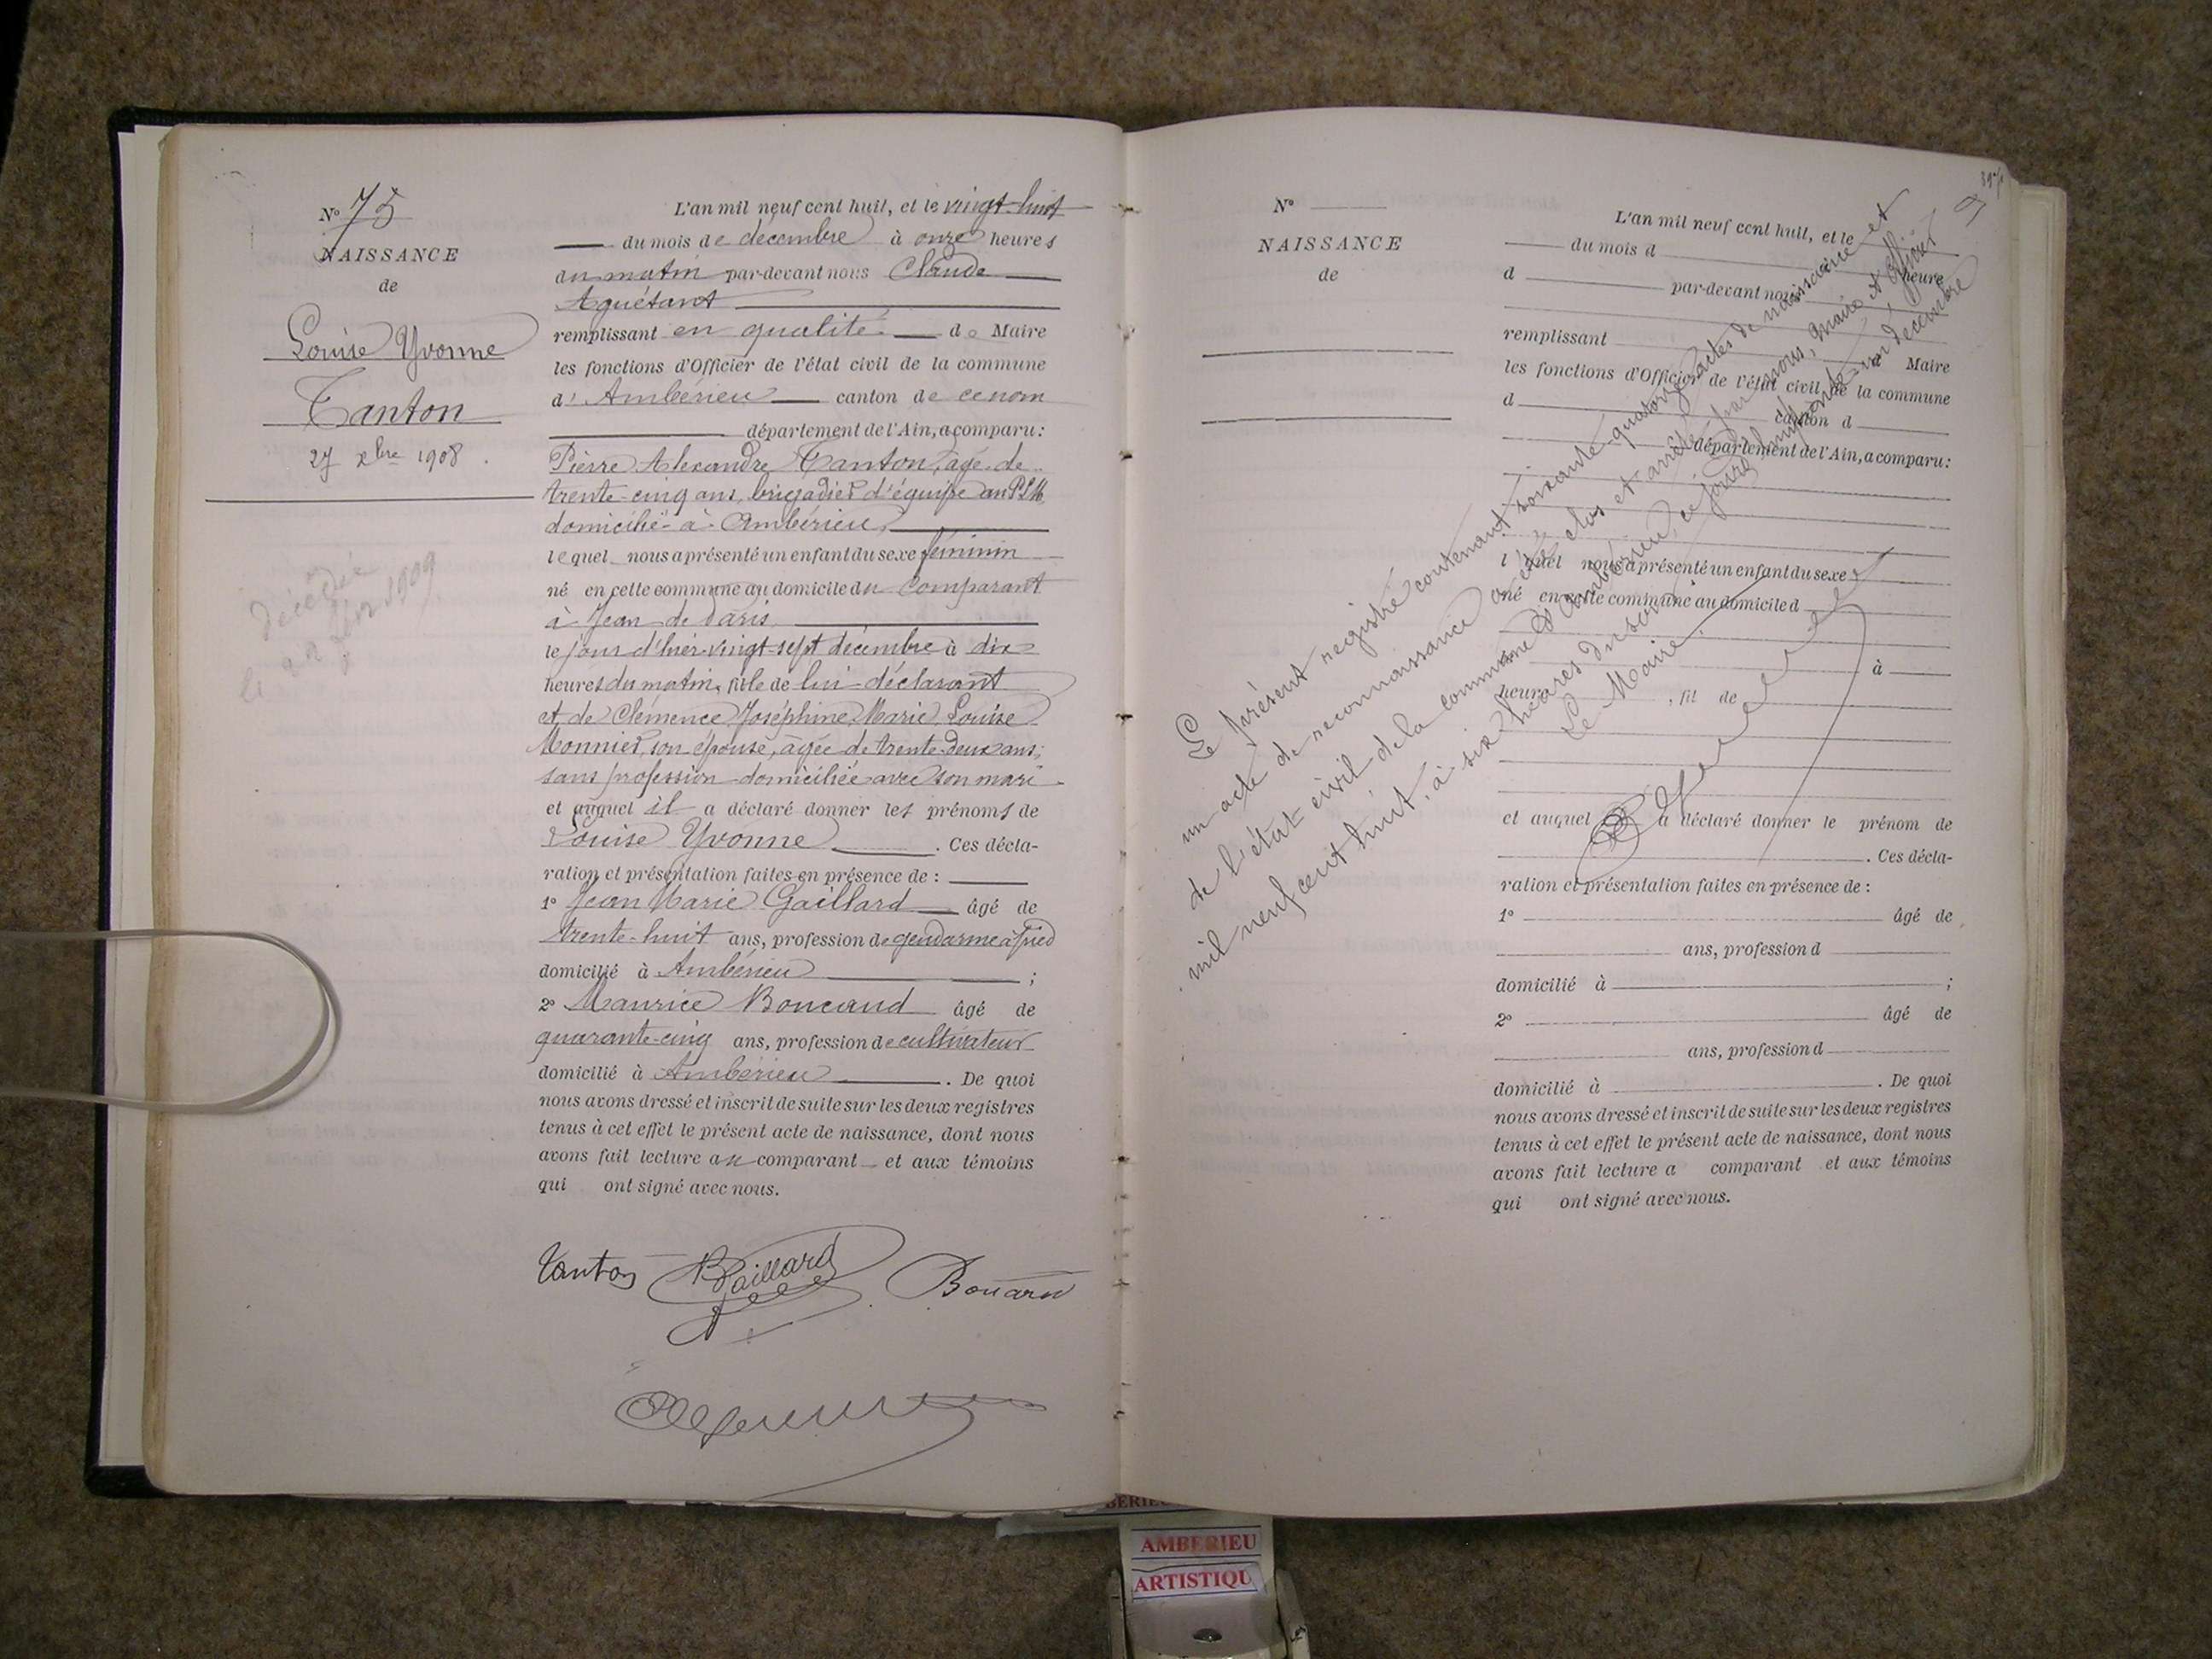 N° 75
NAISSANCE
de
Louise Yvonne
Tanton
27 xbre 1908.
décédée
le 1909
L'an mil neuf cent huit, et le vingt-huit
du mois de décembre à onze heures
du matin par-devant nous Claude
Aguétant
remplissant en qualité de Maire
les fonctions d'Officier de l'état civil de la commune
d'Ambérieu canton de ce nom
département de l'Ain, a comparu :
Pierre Alexandre Tanton, âgé de
trente-cinq ans, brigadier d'équipe au P.L.M.
domicilié à Ambérieu,
lequel nous a présenté un enfant du sexe féminin
né en cette commune au domicile du comparant
à Jean de Paris
le jour d'hier vingt-sept décembre à dix
heures du matin, fille de lui déclarant
et de Clémence Joséphine Marie Louise
Monnier, son épouse, âgée de trente-deux ans,
sans profession domiciliée avec son mari
et auquel il a déclaré donner les prénoms de
Louise Yvonne . Ces décla-
ration et présentation faites en présence de :
1° Jean Marie Gaillard âgé de
trente-huit ans, profession de gendarme à pied
domicilié à Ambérieu ;
2° Maurice Boucaud âgé de
quarante-cinq ans, profession de cultivateur
domicilié à Ambérieu . De quoi
nous avons dressé et inscrit de suite sur les deux registres
tenus à cet effet le présent acte de naissance, dont nous
avons fait lecture au comparant et aux témoins
qui ont signé avec nous.
Tanton Gaillard
N°
NAISSANCE
de
L'an mil neuf cent huit, et le
du mois d à heure
d par-devant nous
remplissant d Maire
les fonctions d'Officier de l'état civil de la commune
d canton d
département de l'Ain, a comparu :
l quel nous a présenté un enfant du sexe
né en cette commune au domicile d
à
heure , fil de
et auquel a déclaré donner le prénom de
. Ces décla-
ration et présentation faites en présence de :
1° âgé de
ans, profession d
domicilié à ;
2° âgé de
ans, profession d
domicilié à . De quoi
nous avons dressé et inscrit de suite sur les deux registres
tenus à cet effet le présent acte de naissance, dont nous
avons fait lecture a comparant et aux témoins
qui ont signé avec nous.
Le présent registre contenant soixante quatorze actes de naissance et
un acte de reconnaissance a été clos et arrêté par nous, Maire et Officier
de l'état civil de la commune d'Ambérieu, ce jourd'hui trente-un décembre
mil neuf cent huit, à six heures du soir.
Le Maire
AMBERIEU
ARTISTIQU